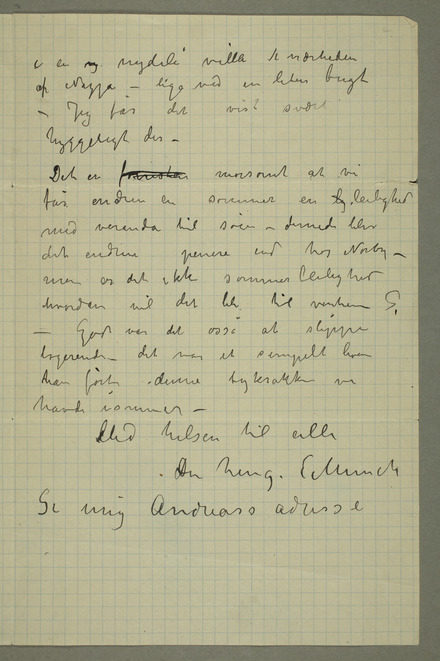 i en ny nydelig villa i nærheden
af Nizza – lige ved en liten bugt
– Jeg får det vist svært
hyggeligt der –
Det er morsomt at vi
får endnu en sommer en lejlighed
med veranda til søen – denne blir
det endnu penere end hos Norby –
men er det ikke sommerleilighed
hvordan vil det bli til vinteren
– Godt var det også at slippe
logerende – det var et simpelt hun
han førte denne
havde isommer –
Med hilsen til alle
Din heng. EMunch
Gi mig Andreas's adresse